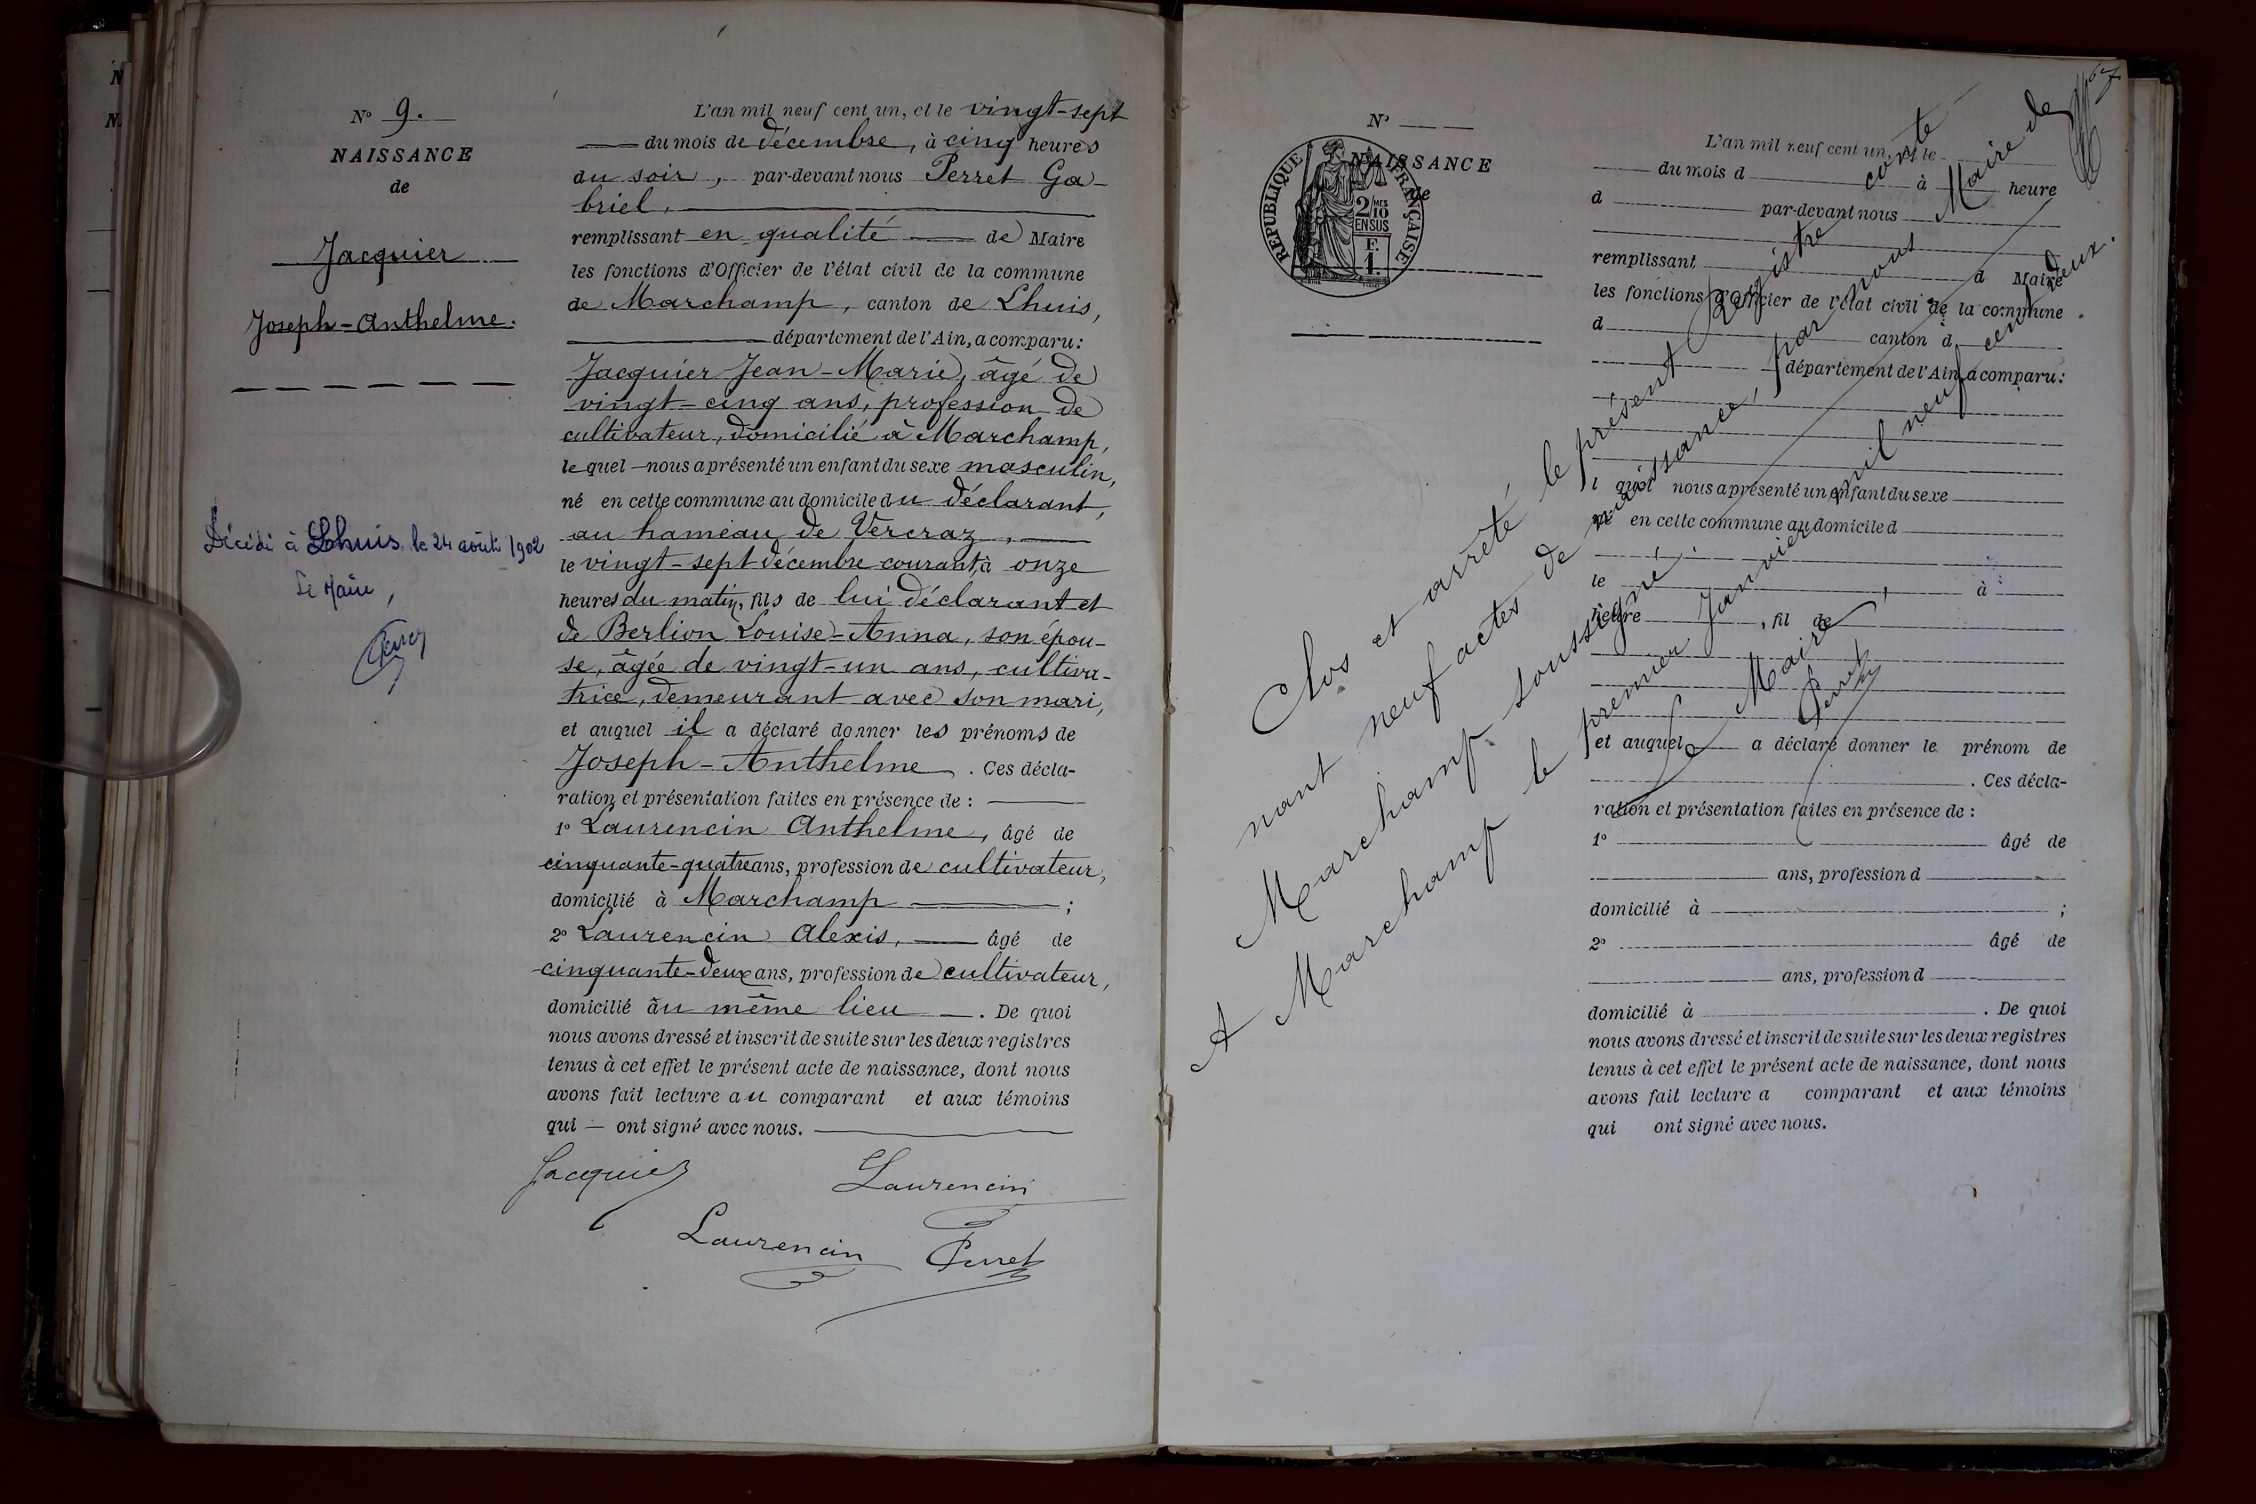 N° 9.
NAISSANCE
de
Jacquier
Joseph-Anthelme.
Décédé à Lhuis le 24 août 1902
Le Maire,
L'an mil neuf cent un, et le vingt-sept
du mois de décembre, à cinq heures
du soir, par-devant nous Perret Ga-
briel,
remplissant en qualité de Maire
les fonctions d'Officier de l'état civil de la commune
de Marchamp, canton de Lhuis,
département de l'Ain, a comparu:
Jacquier Jean-Marie, âgé de
vingt-cinq ans, profession de
cultivateur, domicilié à Marchamp,
lequel nous a présenté un enfant du sexe masculin,
né en cette commune au domicile du déclarant,
au hameau de Vercraz,
le vingt-sept décembre courant, à onze
heures du matin, fils de lui déclarant et
de Berlion Louise-Anna, son épou-
se, âgée de vingt-un ans, cultiva-
trice, demeurant avec son mari,
et auquel il a déclaré donner les prénoms de
Joseph-Anthelme. Ces décla-
ration et présentation faites en présence de :
1° Laurencin Anthelme, âgé de
cinquante-quatre ans, profession de cultivateur,
domicilié à Marchamp ;
2° Laurencin Alexis, âgé de
cinquante-deux ans, profession de cultivateur,
domicilié au même lieu. De quoi
nous avons dressé et inscrit de suite sur les deux registres
tenus à cet effet le présent acte de naissance, dont nous
avons fait lecture au comparant et aux témoins
qui — ont signé avec nous.
Jacquier Laurencin
Laurencin Perret
N°
NAISSANCE
de
RÉPUBLIQUE FRANÇAISE
2/10 MES
EN SUS
F.
1.
L'an mil neuf cent un, et le
du mois d à heure
d par-devant nous
remplissant d Maire
les fonctions d'Officier de l'état civil de la commune
d canton d
département de l'Ain, a comparu:
l quel nous a présenté un enfant du sexe
né en cette commune au domicile d
le à
heure , fil de
et auquel a déclaré donner le prénom de
. Ces décla-
ration et présentation faites en présence de :
1° âgé de
ans, profession d
domicilié à ;
2° âgé de
ans, profession d
domicilié à . De quoi
nous avons dressé et inscrit de suite sur les deux registres
tenus à cet effet le présent acte de naissance, dont nous
avons fait lecture a comparant et aux témoins
qui ont signé avec nous.
Clos et arrêté le présent Registre conte
nant neuf actes de naissance, par nous Maire de
Marchamp soussigné.
A Marchamp le premier Janvier mil neuf cent deux.
Le Maire,
Perret